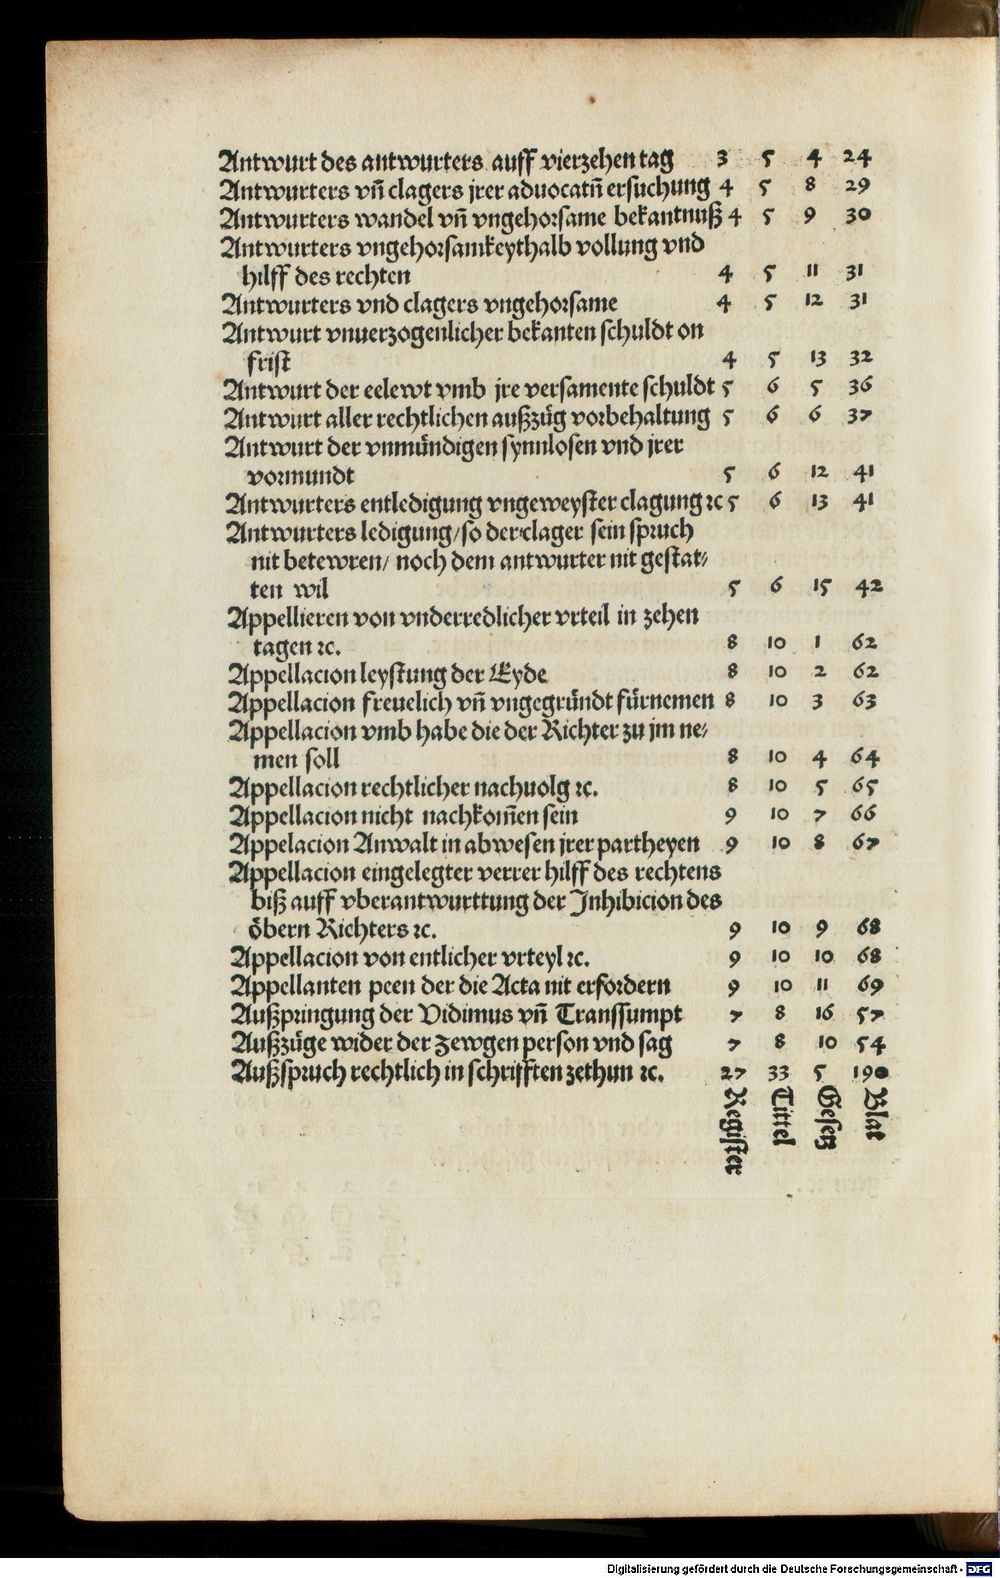 Antwurt des antwurters auff vierzehen tag 3 5 4 24
Antwurters vn̄ clagers jrer aduocatn̄ ersuchung 4 5 8 29
Antwurters wandel vn̄ vngehorsame bekantnuß 4 5 9 30
Antwurters vngehorsamkeythalb vollung vnd
hilff des rechten 4 5 11 31
Antwurters vnd clagers vngehorsame 4 5 12 31
Antwurt vnuerzogenlicher bekanten schuldt on
frist 4 5 13 32
Antwurt der eelewt vmb jre versamente schuldt 5 6 5 36
Antwurt aller rechtlichen außzüg vorbehaltung 5 6 6 37
Antwurt der vnmündigen synnlosen vnd jrer
vormundt 5 6 12 41
Antwurters entledigung vngeweyster clagung ꝛc 5 6 13 41
Antwurters ledigung/ so der clager sein spruch
nit betewren/ noch dem antwurter nit gestat⸗
ten wil 5 6 15 42
Appellieren von vnderredlicher vrteil in zehen
tagen ꝛc. 8 10 1 62
Appellacion leystung der Eyde 8 10 2 62
Appellacion freuelich vn̄ vngegründt fürnemen 8 10 3 63
Appellacion vmb habe die der Richter zu jm ne⸗
men soll 8 10 4 64
Appellacion rechtlicher nachuolg ꝛc. 8 10 5 65
Appellacion nicht nachkom̄en sein 9 10 7 66
Appelacion Anwalt in abwesen jrer partheyen 9 10 8 67
Appellacion eingelegter verrer hilff des rechtens
biß auff vberantwurttung der Inhibicion des
öbern Richters ꝛc. 9 10 9 68
Appellacion von entlicher vrteyl ꝛc. 9 10 10 68
Appellanten peen der die Acta nit erfordern 9 10 11 69
Außpringung der Vidimus vn̄ Transsumpt 7 8 16 57
Außzüge wider der zewgen person vnd sag 7 8 10 54
Außspruch rechtlich in schrifften zethun ꝛc. 27 33 5 190
Register Tittel Gesetz Blat
Digitalisierung gefördert durch die Deutsche Forschungsgemeinschaft - DFG